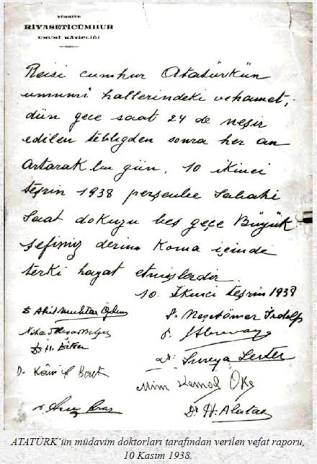 TÜRKİYE
RİYASETİCÜMHUR
UMUMİ KÂTİPLİĞİ
Reisi cumhur Atatürkün
umumî hallerindeki vehamet,
dün gece saat 24 de neşir
edilen tebliğden sonra her an
artarak bu gün, 10 ikinci
teşrin 1938 perşenbe sabahi
saat dokuzu beş geçe Büyük
şefimiz derin koma içinde
terki hayat etmişlerdir.
10. İkinci teşrin 1938
Dr. Süreya Serter
Mim Kemal Öke
Dr H. Alataş
ATATÜRK'ün müdavim doktorları tarafından verilen vefat raporu,
10 Kasım 1938.